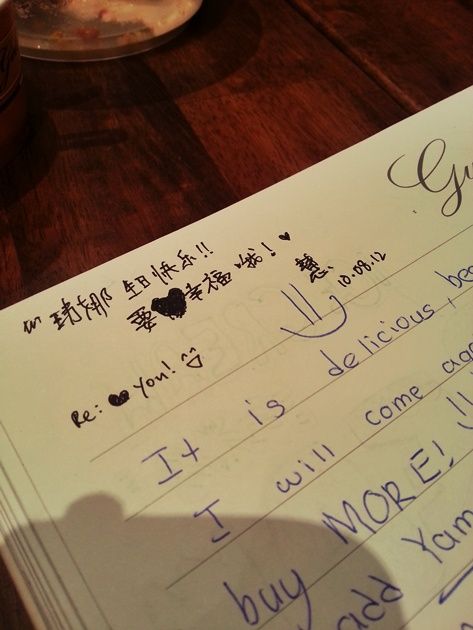 Gu
瑋娜 生日快乐!!
要♥幸福哦!♥
慧 10.08.12
Re: ♥ You!
It is delicious, bec
I will come aga
buy MORE!
add Yam